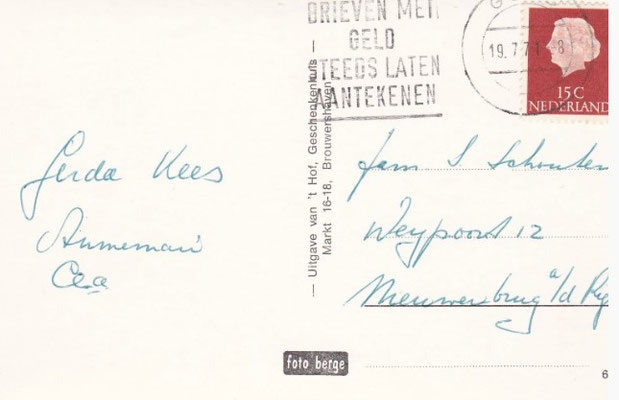 BRIEVEN MET
GELD
STEEDS LATEN
AANTEKENEN
19.7.71 8
15 C
NEDERLAND
Gerda Kees
Annemarie
Cea
— Uitgave van 't Hof, Geschenkenhuis —
Markt 16-18, Brouwershaven
Fam S Schouten
Weypoort 12
Nieuwerbrug a/d Rij
foto berge
6